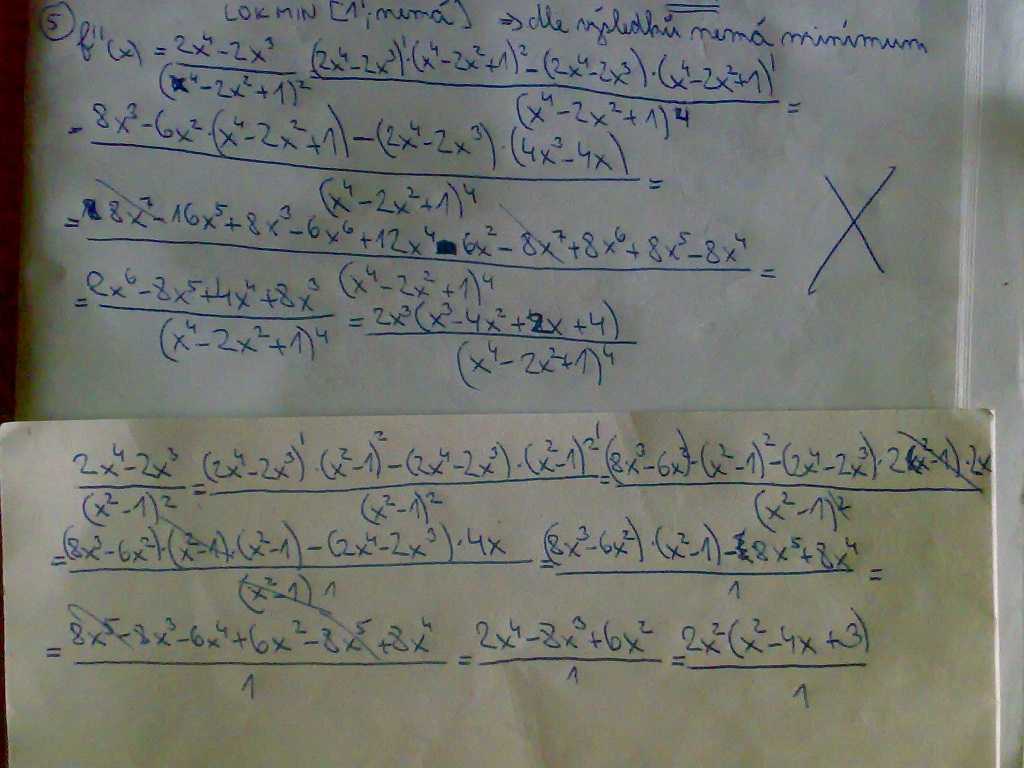 LOK MIN [1; nemá] ⇒ dle výsledků nemá minimum
⑤ f''(x) = (2x⁴-2x³)/(x⁴-2x²+1)² ((2x⁴-2x³)'·(x⁴-2x²+1)²-(2x⁴-2x³)·(x⁴-2x²+1)')/(x⁴-2x²+1)⁴ =
= (8x³-6x²·(x⁴-2x²+1)-(2x⁴-2x³)·(4x³-4x))/(x⁴-2x²+1)⁴ =
= (8x⁷-16x⁵+8x³-6x⁶+12x⁴-6x²-8x⁷+8x⁶+8x⁵-8x⁴)/(x⁴-2x²+1)⁴ =
= (2x⁶-8x⁵+4x⁴+8x³)/(x⁴-2x²+1)⁴ = (2x³(x³-4x²+2x+4))/(x⁴-2x²+1)⁴
(2x⁴-2x³)/(x²-1)² = ((2x⁴-2x³)'·(x²-1)²-(2x⁴-2x³)·(x²-1)²')/(x²-1)² = ((8x³-6x²)·(x²-1)²-(2x⁴-2x³)·2(x²-1)·2x)/(x²-1)²
= ((8x³-6x²)·(x²-1)·(x²-1)-(2x⁴-2x³)·4x)/(x²-1) 1 = ((8x³-6x²)·(x²-1)-8x⁵+8x⁴)/1 =
= (8x⁵-8x³-6x⁴+6x²-8x⁵+8x⁴)/1 = (2x⁴-8x³+6x²)/1 = (2x²(x²-4x+3))/1